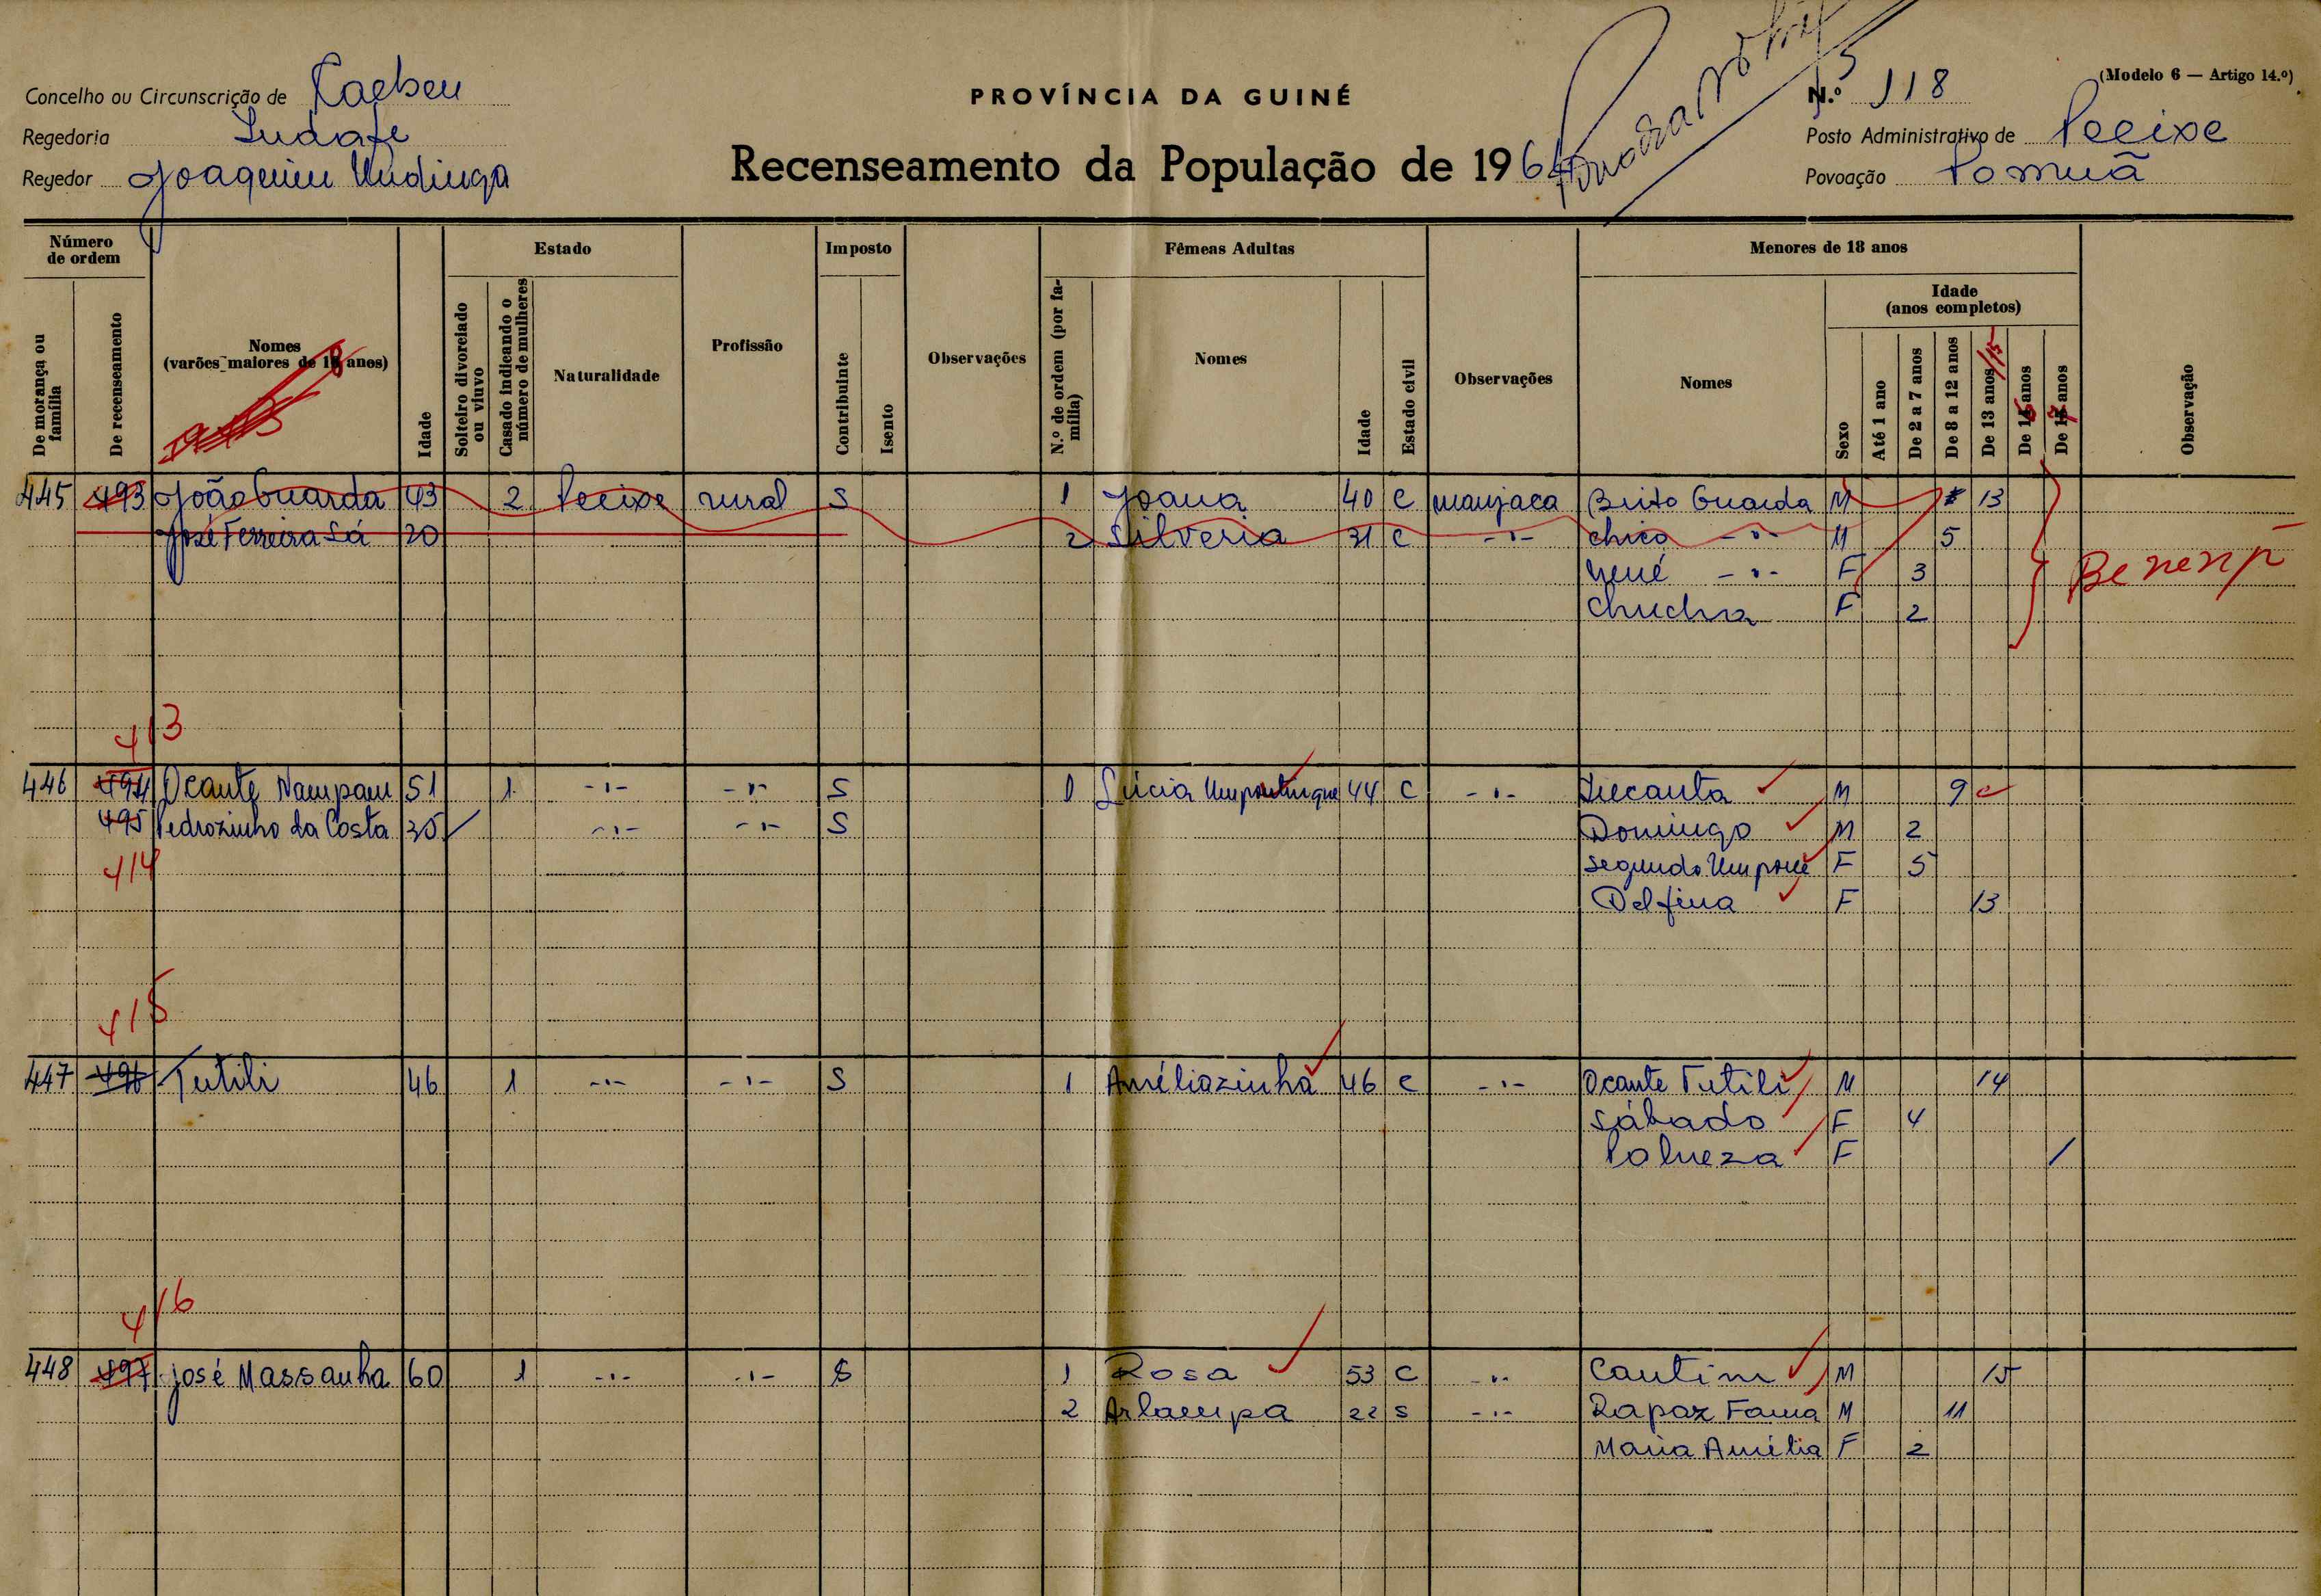 (Modelo 6 — Artigo 14.º)
Concelho ou Circunscrição de
PROVÍNCIA DA GUINÉ
N.º 118
Regedoria
Posto Administrativo de Pecixe
Regedor Joaquim
Recenseamento da População de 1964
Povoação
Número de ordem
De morança ou família
De recenseamento
Nomes
(varões maiores de 18 anos)
Idade
Estado
Solteiro divorciado ou viuvo
Casado indicando o número de mulheres
Naturalidade
Profissão
Imposto
Contribuinte
Isento
Observações
Fêmeas Adultas
N.º de ordem (por família)
Nomes
Idade
Estado civil
Observações
Menores de 18 anos
Nomes
Idade
(anos completos)
Sexo
Até 1 ano
De 2 a 7 anos
De 8 a 12 anos
De 13 anos /15
De 16 anos
De 17 anos
Observação
445 493 João Guarda 43 2 Pecixe rural S 1 Joana 40 C manjaca Brito Guarda M 13
José Ferreira Sá 20 2 Silveria 31 C -"- chico -"- M 5
Nené -"- F 3
chucha F 2
413
446 494 Ocante Nampam 51 1 -"- -"- S 1 Lúcia 44 C -"- M 9
495 Pedrozinho da Costa -"- -"- S Domingo M 2
414 Segunda F 5
Delfina F 13
415
447 496 Tutili 46 1 -"- -"- S 1 Améliazinha 46 C -"- Ocante Tutili M 14
Sábado F 4
F /
416
448 497 José Massanha 60 1 -"- -"- S 1 Rosa 53 C -"- Cantim M 15
2 22 S -"- Rapaz Fama M 11
Maria Amélia F 2